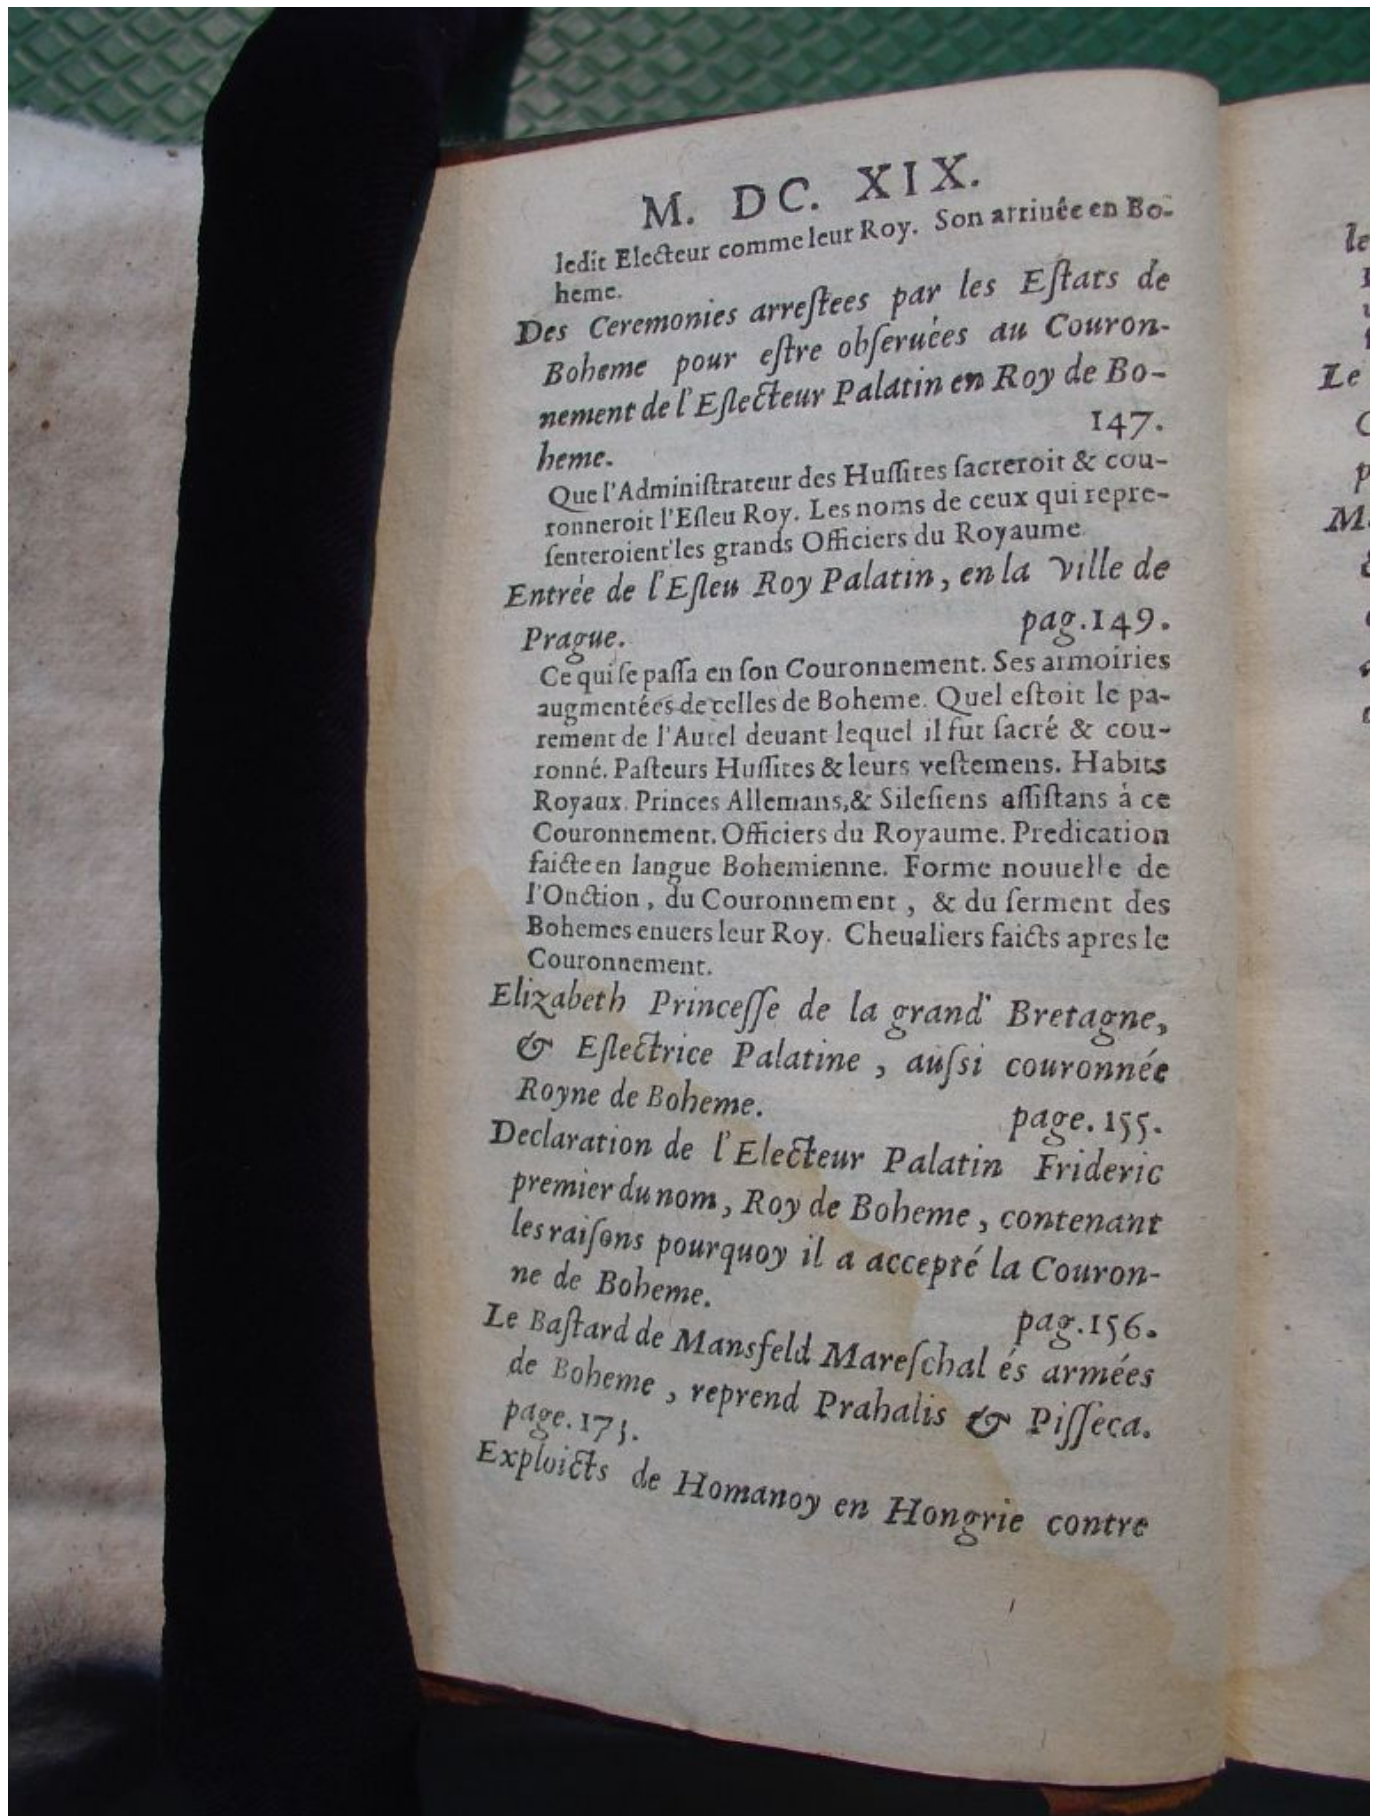 M. DC. XIX.
ledit Electeur comme leur Roy. Son arriuée en Bo-
heme.
Des Ceremonies arreſtees par les Eſtats de
Boheme pour eſtre obſeruées au Couron-
nement de l'Eſlecteur Palatin en Roy de Bo-
heme. 147.
Que l'Adminiſtrateur des Huſſites ſacreroit & cou-
ronneroit l'Eſleu Roy. Les noms de ceux qui repre-
ſenteroient les grands Officiers du Royaume.
Entrée de l'Eſleu Roy Palatin, en la ville de
Prague. pag.149.
Ce qui ſe paſſa en ſon Couronnement. Ses armoiries
augmentées de celles de Boheme. Quel eſtoit le pa-
rement de l'Autel deuant lequel il fut ſacré & cou-
ronné. Paſteurs Huſſites & leurs veſtemens. Habits
Royaux. Princes Allemans, & Sileſiens aſſiſtans à ce
Couronnement. Officiers du Royaume. Predication
faicte en langue Bohemienne. Forme nouuelle de
l'Onction, du Couronnement, & du ſerment des
Bohemes enuers leur Roy. Cheualiers faicts apres le
Couronnement.
Elizabeth Princeſſe de la grand' Bretagne,
& Eſlectrice Palatine, auſsi couronnée
Royne de Boheme. page. 155.
Declaration de l'Electeur Palatin Frideric
premier du nom, Roy de Boheme, contenant
les raiſons pourquoy il a accepté la Couron-
ne de Boheme. pag.156.
Le Baſtard de Mansfeld Mareſchal és armées
de Boheme, reprend Prahalis & Piſſeca.
page. 173.
Exploicts de Homanoy en Hongrie contre
le
Le
p